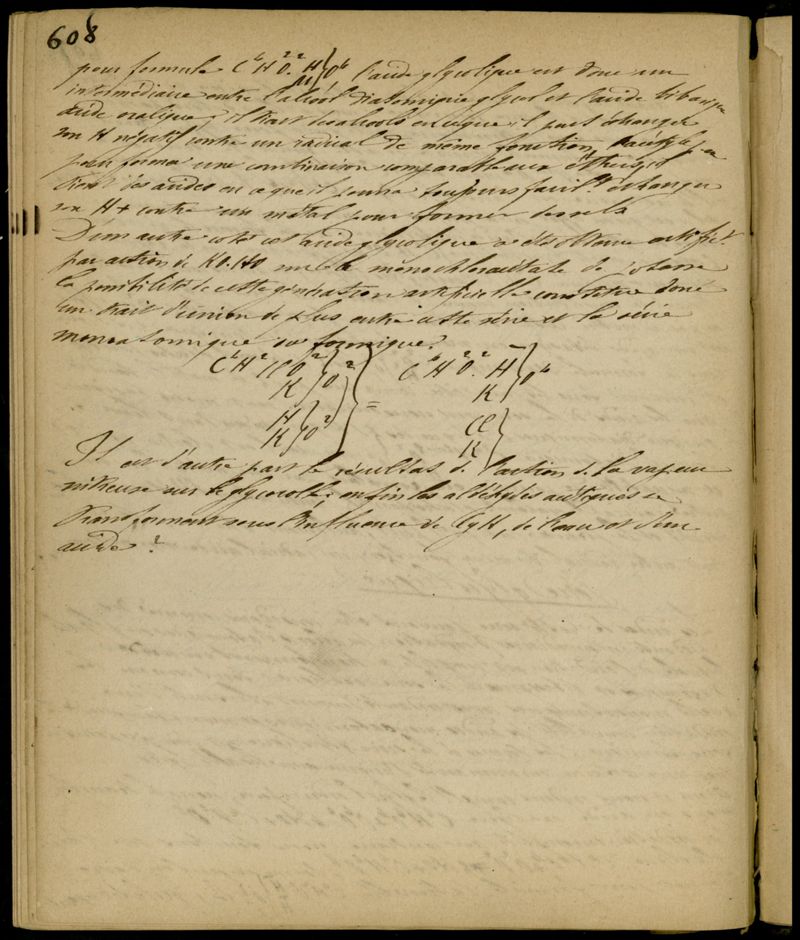 608
pour formule C⁴H²O². H / M } O⁴ l'acide glycolique est donc un
intermédiaire entre l'alcool diatomique glycol et l'acide bibasique
acide oxalique ; il tient des alcools en ce que il peut échanger
son H négatif contre un radical de même fonction, l'acétyle
pour former une combinaison comparable aux éthers, il
tient des acides en ce que il pourra toujours facil.t échanger
son H+ contre un métal pour former des sels
D'un autre coté cet acide glycolique a été obtenu artifi.t
par action de KO.HO sur le monochloracétate de potasse
la possibilité de cette génération artificielle constitue donc
un trait d'union de plus entre cette série et la série
monoatomique ou formique.
C⁴H²ClO² / K } O² } = C⁴H²O². H / K } O⁴
H / K } O² } Cl / K }
Il est d'autre part le résultat de l'action de la vapeur
nitreuse sur le glycocolle ; enfin les aldéhydes
transforment sous l'influence de CyH, de l'eau et d'un
acide ?